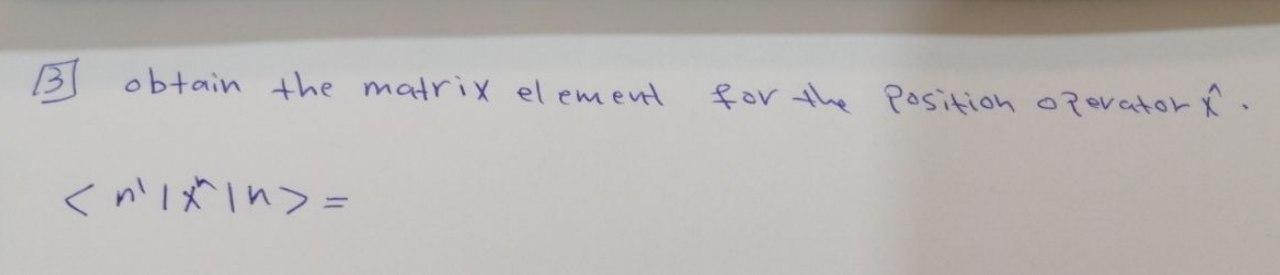 3 obtain the matrix element for the Position operator x̂.
< n' | x̂ | n > =